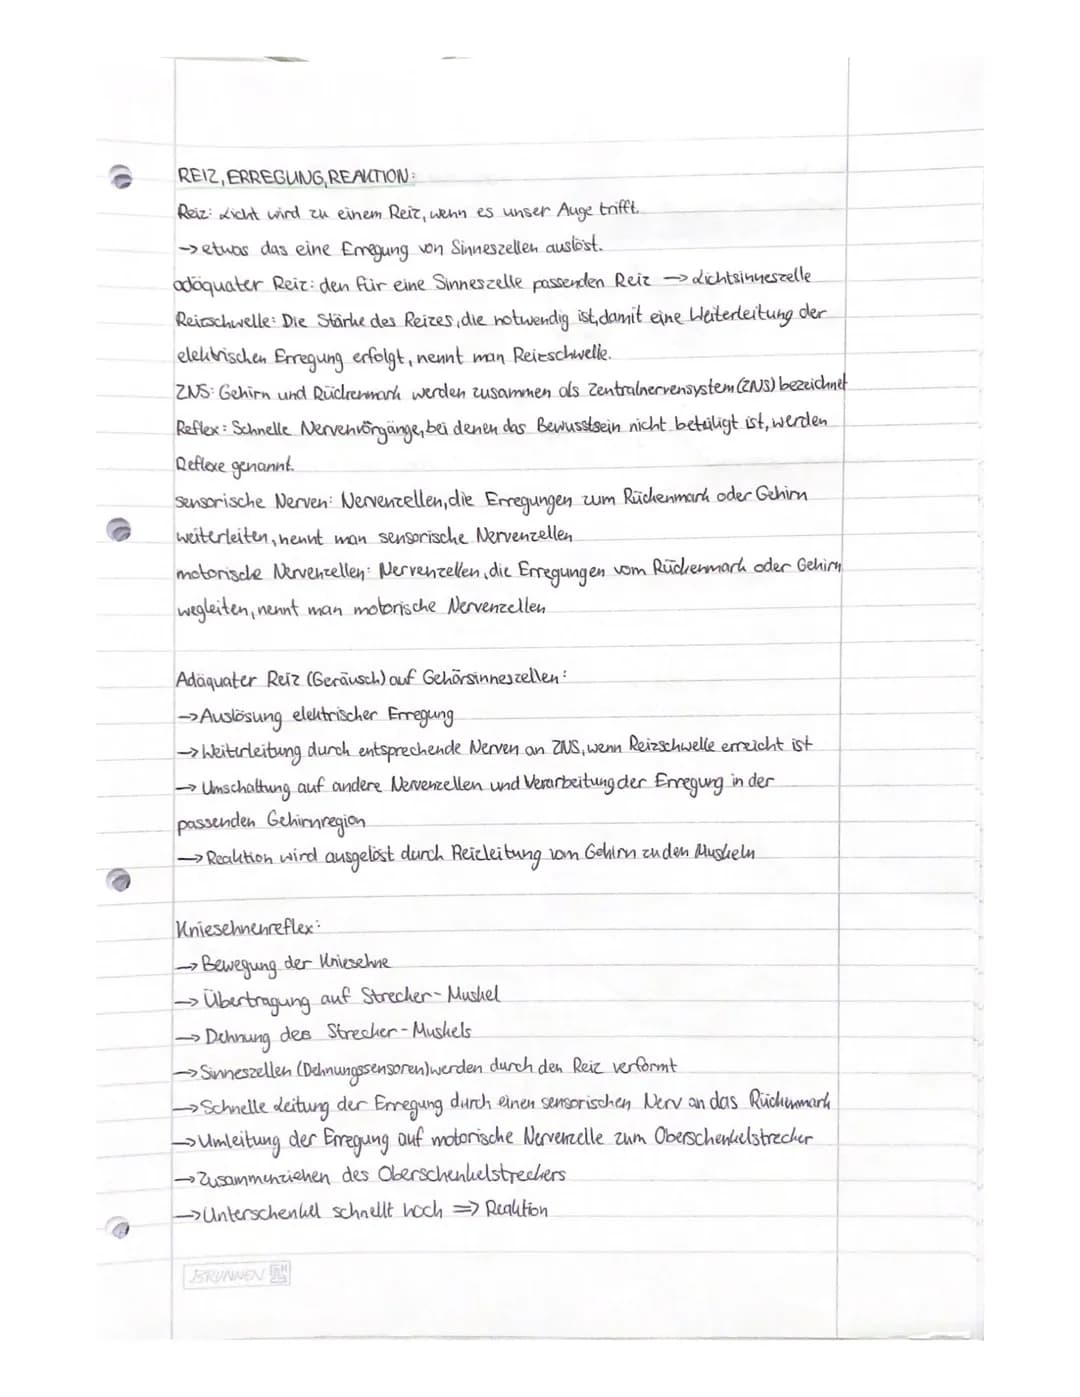 REIZ, ERREGUNG, REAKTION:
Reiz: Licht wird zu einem Reiz, wenn es unser Auge trifft.
→ etwas das eine Erregung von Sinneszellen auslöst.
adäquater Reiz: den für eine Sinneszelle passenden Reiz → Lichtsinneszelle
Reizschwelle: Die Stärke des Reizes, die notwendig ist, damit eine Weiterleitung der
elektrischen Erregung erfolgt, nennt man Reizschwelle.
ZNS: Gehirn und Rückenmark werden zusammen als Zentralnervensystem (ZNS) bezeichnet
Reflex: Schnelle Nervenvorgänge, bei denen das Bewusstsein nicht beteiligt ist, werden
Reflexe genannt.
sensorische Nerven: Nervenzellen, die Erregungen zum Rückenmark oder Gehirn
weiterleiten, nennt man sensorische Nervenzellen
motorische Nervenzellen: Nervenzellen, die Erregungen vom Rückenmark oder Gehirn
wegleiten, nennt man motorische Nervenzellen
Adäquater Reiz (Geräusch) auf Gehörsinneszellen:
→ Auslösung elektrischer Erregung
→ Weiterleitung durch entsprechende Nerven an ZNS, wenn Reizschwelle erreicht ist
→ Umschaltung auf andere Nervenzellen und Verarbeitung der Erregung in der
passenden Gehirnregion
→ Reaktion wird ausgelöst durch Reizleitung vom Gehirn zu den Muskeln
Kniesehnenreflex:
→ Bewegung der Kniesehne
→ Übertragung auf Strecker-Muskel
→ Dehnung des Strecker-Muskels
→ Sinneszellen (Dehnungssensoren) werden durch den Reiz verformt
→ Schnelle Leitung der Erregung durch einen sensorischen Nerv an das Rückenmark
→ Umleitung der Erregung auf motorische Nervenzelle zum Oberschenkelstrecker
→ Zusammenziehen des Oberschenkelstreckers
→ Unterschenkel schnellt hoch ⇒ Reaktion
BRUNNEN